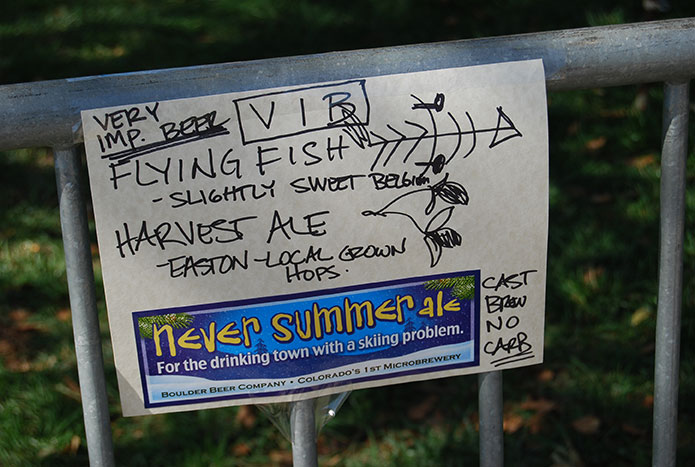 VERY
IMP. BEER
VIB
FLYING FISH
- SLIGHTLY SWEET BELGIUM
HARVEST ALE
-EASTON-LOCAL GROWN
HOPS.
never summer ale
For the drinking town with a skiing problem.
BOULDER BEER COMPANY • COLORADO'S 1ST MICROBREWERY
CAST
BREW
NO
CARB